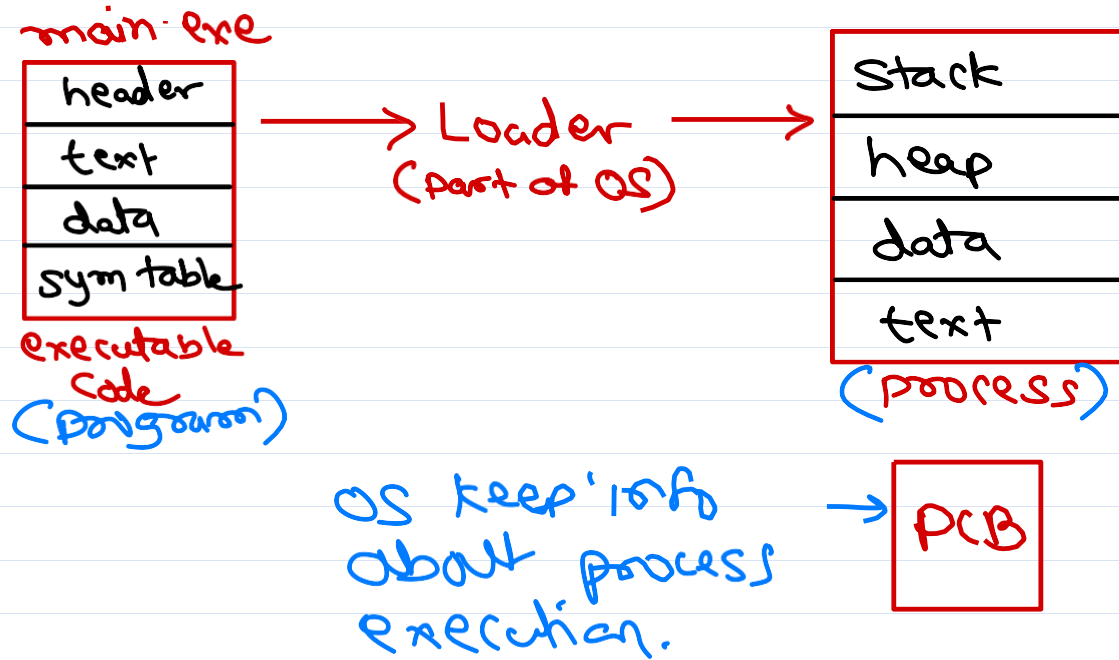 main.exe
header
text
data
sym table
executable
code
(program)
Loader
(part of OS)
stack
heap
data
text
(process)
OS keep info
about process
execution.
PCB